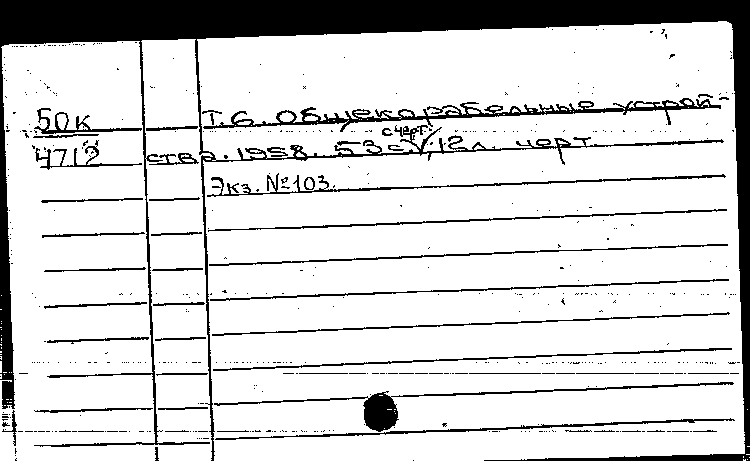 50к Т.6. Общекорабельные устрой-
4712 ства. 1958. 53 с. с черт.; 12 л. черт.
Экз. №103.